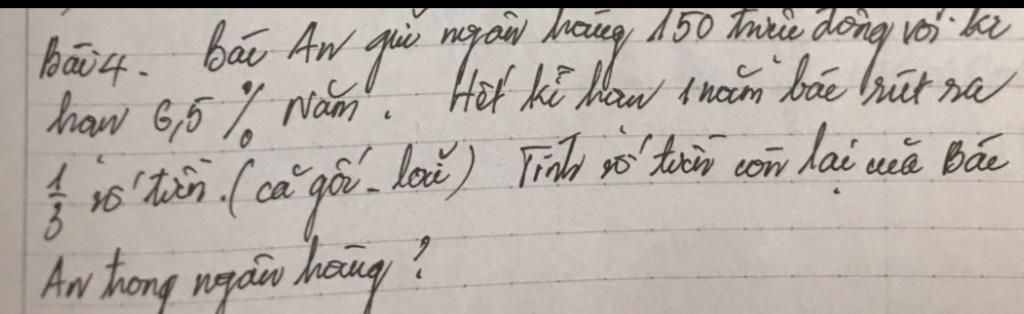 Bài 4. Bác An gửi ngân hàng 150 triệu đồng với kì
hạn 6,5 % Năm. Hết kì hạn 1 năm bác rút ra
1/3 số tiền. (cả gốc - lãi) Tính số tiền còn lại của Bác
An trong ngân hàng?